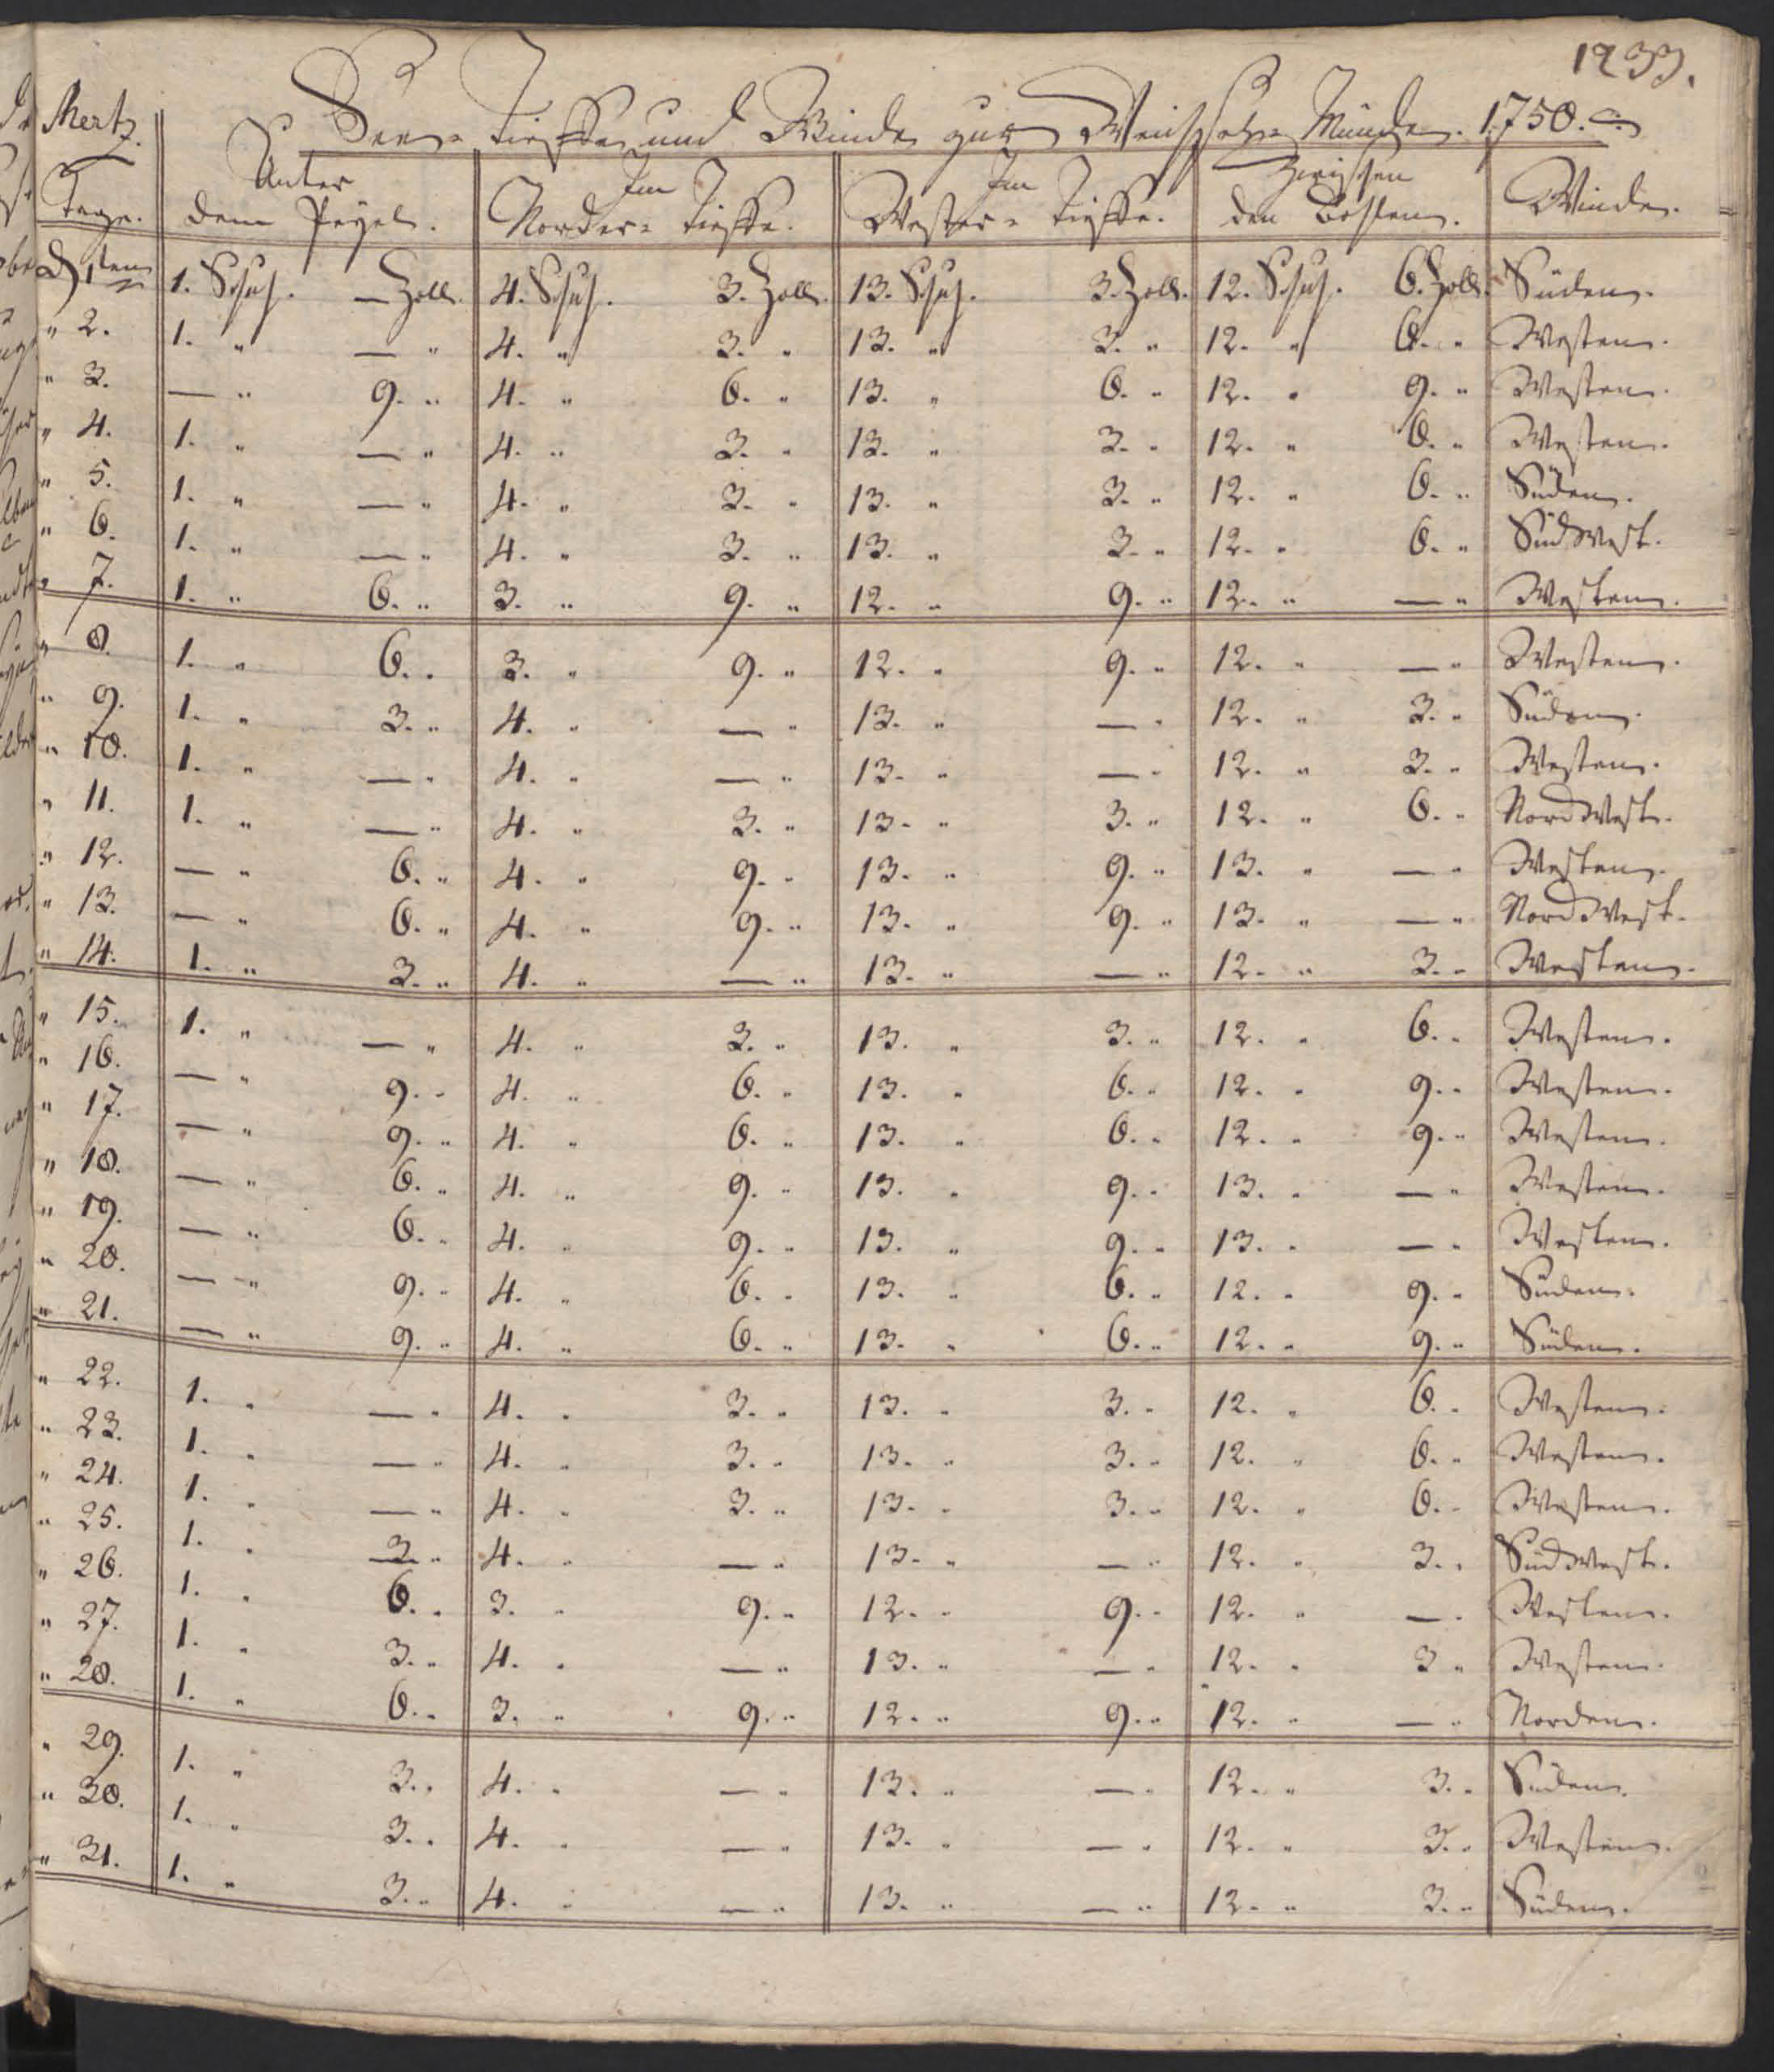 1233.
Mertz.
See= Tieffe und Winde zur Weichsel= Münde. 1750.
Tage. Unter dem Peÿel. Im Norder= Tieffe. Im Wester= Tieffe. Zwischen den Bohlen. Winde.
d 1ten 1. Schuh. — Zoll. 4. Schuh. 3. Zoll. 13. Schuh. 3. Zoll. 12. Schuh. 6. Zoll. Süden.
" 2. 1. " — " 4. " 3. " 13. " 3. " 12. " 6. " Westen.
" 3. — " 9. " 4. " 6. " 13. " 6. " 12. " 9. " Westen.
" 4. 1. " — " 4. " 3. " 13. " 3. " 12. " 6. " Westen.
" 5. 1. " — " 4. " 3. " 13. " 3. " 12. " 6. " Süden.
" 6. 1. " — " 4. " 3. " 13. " 3. " 12. " 6. " SüdWest.
" 7. 1. " 6. " 3. " 9. " 12. " 9. " 12. " — " Westen.
" 8. 1. " 6. " 3. " 9. " 12. " 9. " 12. " — " Westen.
" 9. 1. " 3. " 4. " — " 13. " — " 12. " 3. " Süden.
" 10. 1. " — " 4. " — " 13. " — " 12. " 3. " Westen.
" 11. 1. " — " 4. " 3. " 13. " 3. " 12. " 6. " NordWest.
" 12. — " 6. " 4. " 9. " 13. " 9. " 13. " — " Westen.
" 13. — " 6. " 4. " 9. " 13. " 9. " 13. " — " NordWest.
" 14. 1. " 3. " 4. " — " 13. " — " 12. " 3. " Westen.
" 15. 1. " — " 4. " 3. " 13. " 3. " 12. " 6. " Westen.
" 16. — " 9. " 4. " 6. " 13. " 6. " 12. " 9. " Westen.
" 17. — " 9. " 4. " 6. " 13. " 6. " 12. " 9. " Westen.
" 18. — " 6. " 4. " 9. " 13. " 9. " 13. " — " Westen.
" 19. — " 6. " 4. " 9. " 13. " 9. " 13. " — " Westen.
" 20. — " 9. " 4. " 6. " 13. " 6. " 12. " 9. " Süden.
" 21. — " 9. " 4. " 6. " 13. " 6. " 12. " 9. " Süden.
" 22. 1. " — " 4. " 3. " 13. " 3. " 12. " 6. " Westen.
" 23. 1. " — " 4. " 3. " 13. " 3. " 12. " 6. " Westen.
" 24. 1. " — " 4. " 3. " 13. " 3. " 12. " 6. " Westen.
" 25. 1. " 3. " 4. " — " 13. " — " 12. " 3. " SüdWest.
" 26. 1. " 6. " 3. " 9. " 12. " 9. " 12. " — " Westen.
" 27. 1. " 3. " 4. " — " 13. " — " 12. " 3 " Westen.
" 28. 1. " 6. " 3. " 9. " 12. " 9. " 12. " — " Norden.
" 29. 1. " 3. " 4. " — " 13. " — " 12. " 3. " Süden.
" 30. 1. " 3. " 4. " — " 13. " — " 12. " 3. " Westen.
" 31. 1. " 3. " 4. " — " 13. " — " 12. " 3. " Süden.